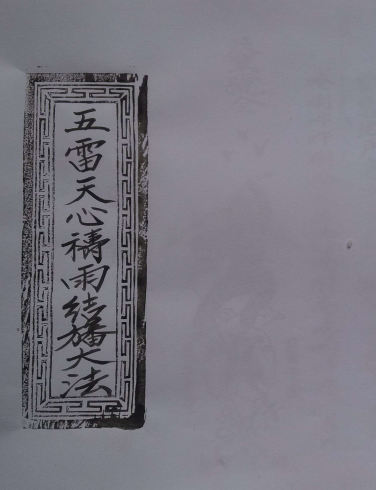 五雷天心禱雨結旛大法